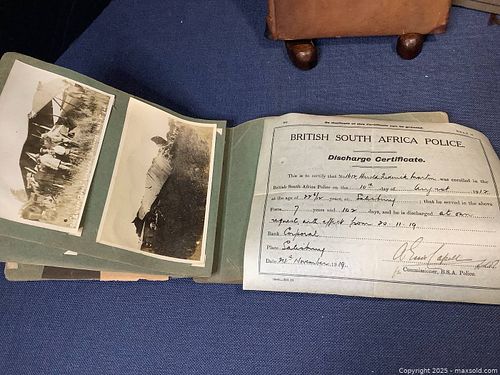 No duplicate of this Certificate can be granted.
BRITISH SOUTH AFRICA POLICE.
Discharge Certificate.
This is to certify that No 1612 Harold Frederick was enrolled in the
British South Africa Police on the 10th day of August 1912
at the age of 22 years, at Salisbury that he served in the above
Force 7 years and 102 days, and he is discharged at own
request, with effect from 20-11-19.
Rank Corporal
Place Salisbury
Date 21st November, 1919.
for Commissioner, B.S.A. Police.
Copyright 2025 - maxsold.com